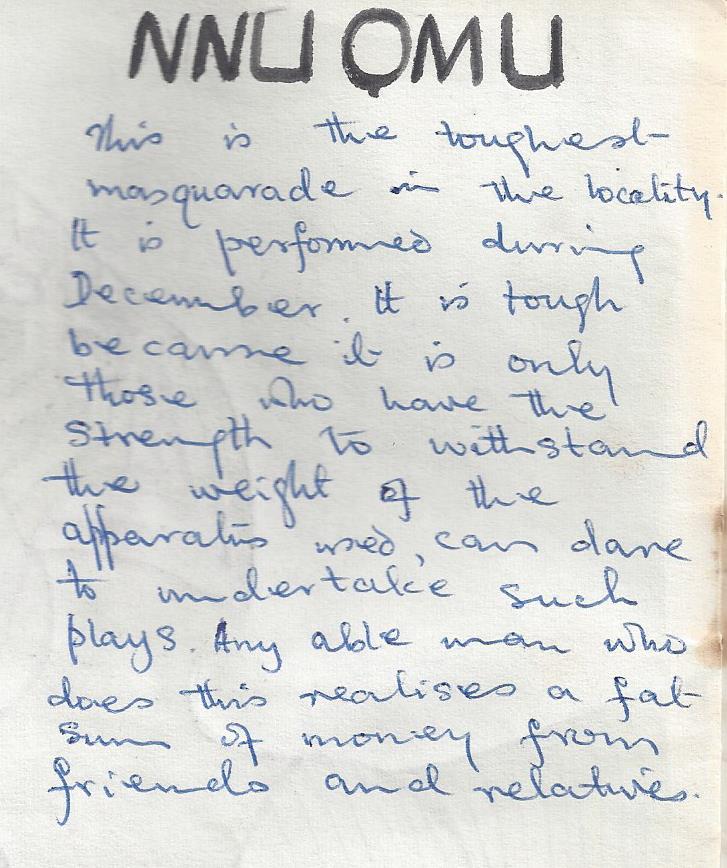 NNU ỌMU
This is the toughest
masquarade in the locality.
It is performed during
December. It is tough
because it is only
those who have the
strength to withstand
the weight of the
apparatus used, can dare
to undertake such
plays. Any able man who
does this realises a fat
sum of money from
friends and relatives.